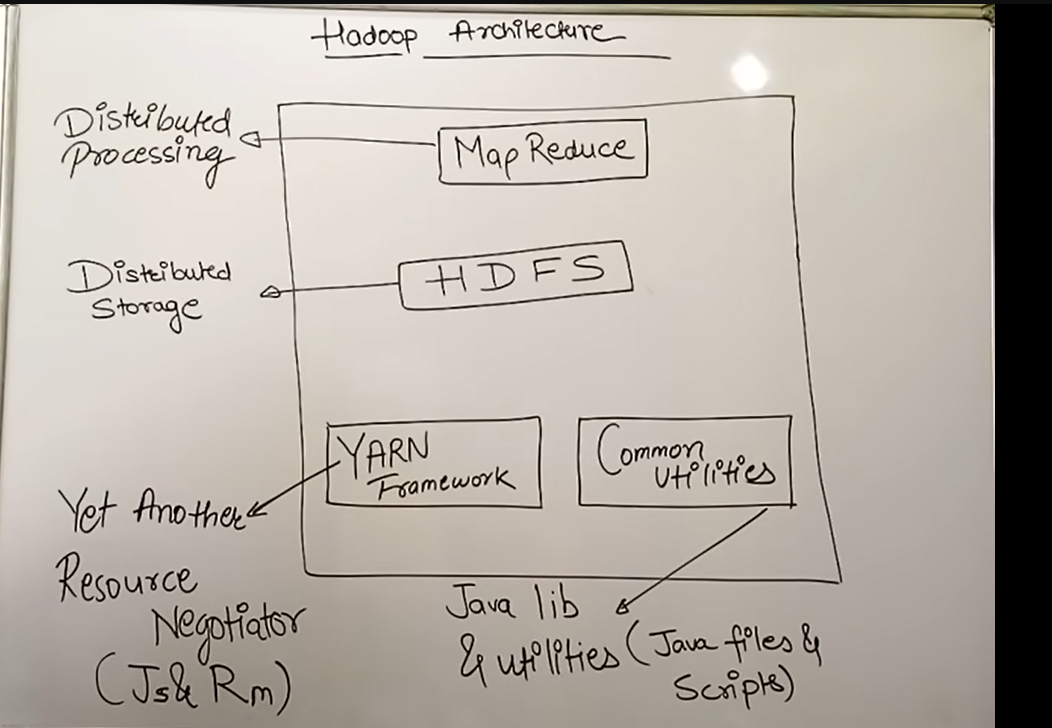 Hadoop Architecture
Distributed
Processing
Map Reduce
Distributed
Storage
HDFS
YARN
Framework
Common
Utilities
Yet Another
Resource
Negotiator
(Js& Rm)
Java lib
& utilities (Java files &
Scripts)